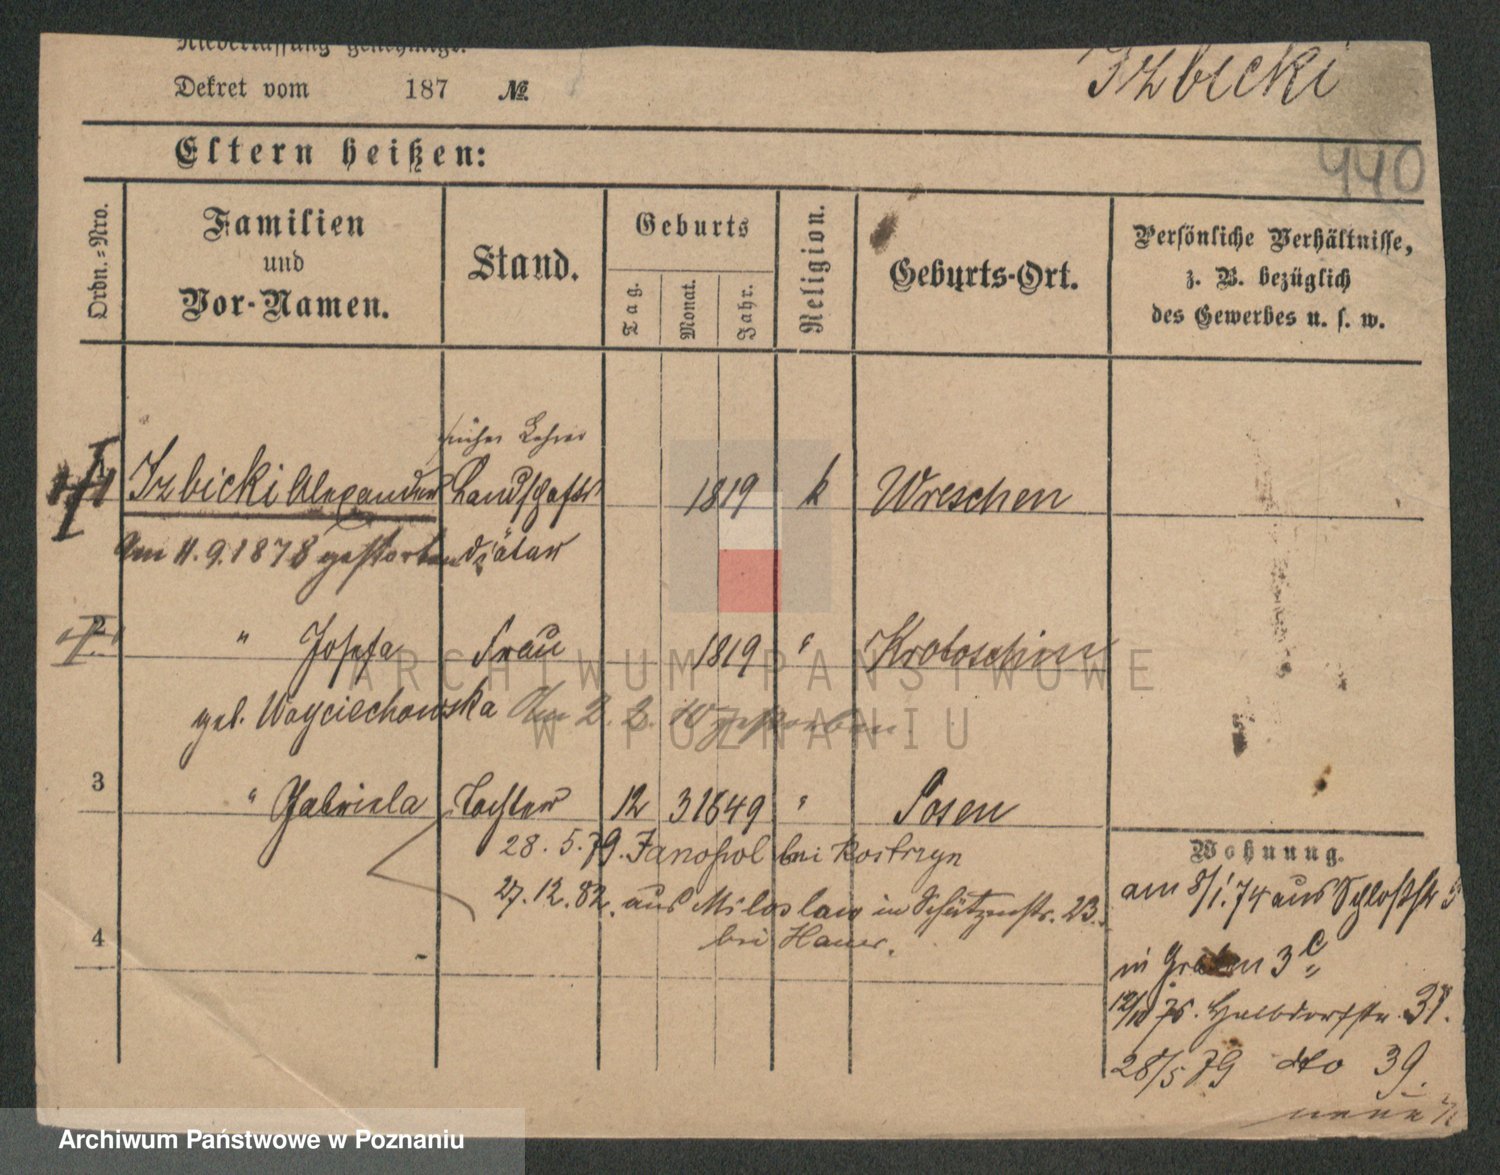 Niederlassung genehmigt.
Dekret vom 187 №.
Izbicki
440
Eltern heißen:
Ordn.-Nro.
Familien
und
Vor-Namen.
Stand.
Geburts
Tag.
Monat.
Jahr.
Religion.
Geburts-Ort.
Persönliche Verhältnisse,
z. B. bezüglich
des Gewerbes u. s. w.
früher Lehrer
1 Izbicki Alexander Landschafts 1819 k Wreschen
Am 11.9.1878 gestorben diätar
2 " Josefa Frau 1819 " Krotoschin
geb. Woyciechowska Am 2. 2. gestorben.
3 " Gabriela Tochter 12 3 1849 " Posen
28. 5. 79. Janopol bei Kostrzyn
27. 12. 82. aus Miloslaw in Schützenstr. 23.
bei Hauer.
4
Wohnung.
am 8/1. 74 aus Schloßstr 5
in Graben 3 C
12/10 75. Halbdorfstr. 31.
28/5 79 dto 39.
ARCHIWUM PAŃSTWOWE
W POZNANIU
Archiwum Państwowe w Poznaniu